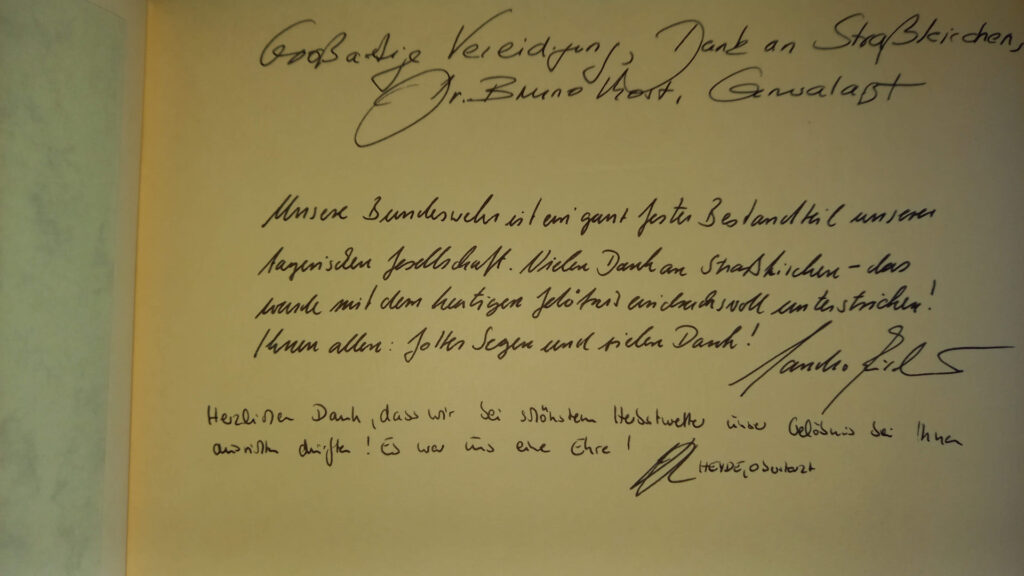 Großartige Vereidigung, Dank an Straßkirchen,
Dr. Bruno Most, Generalarzt
Unsere Bundeswehr ist ein ganz fester Bestandteil unserer
bayerischen Gesellschaft. Vielen Dank an Straßkirchen – das
wurde mit dem heutigen Gelöbnis eindrucksvoll unterstrichen!
Ihnen allen: Gottes Segen und vielen Dank!
Herzlichen Dank, dass wir bei schönstem Herbstwetter unser Gelöbnis bei Ihnen
ausrichten durften! Es war uns eine Ehre!
HEYDE, Oberstarzt